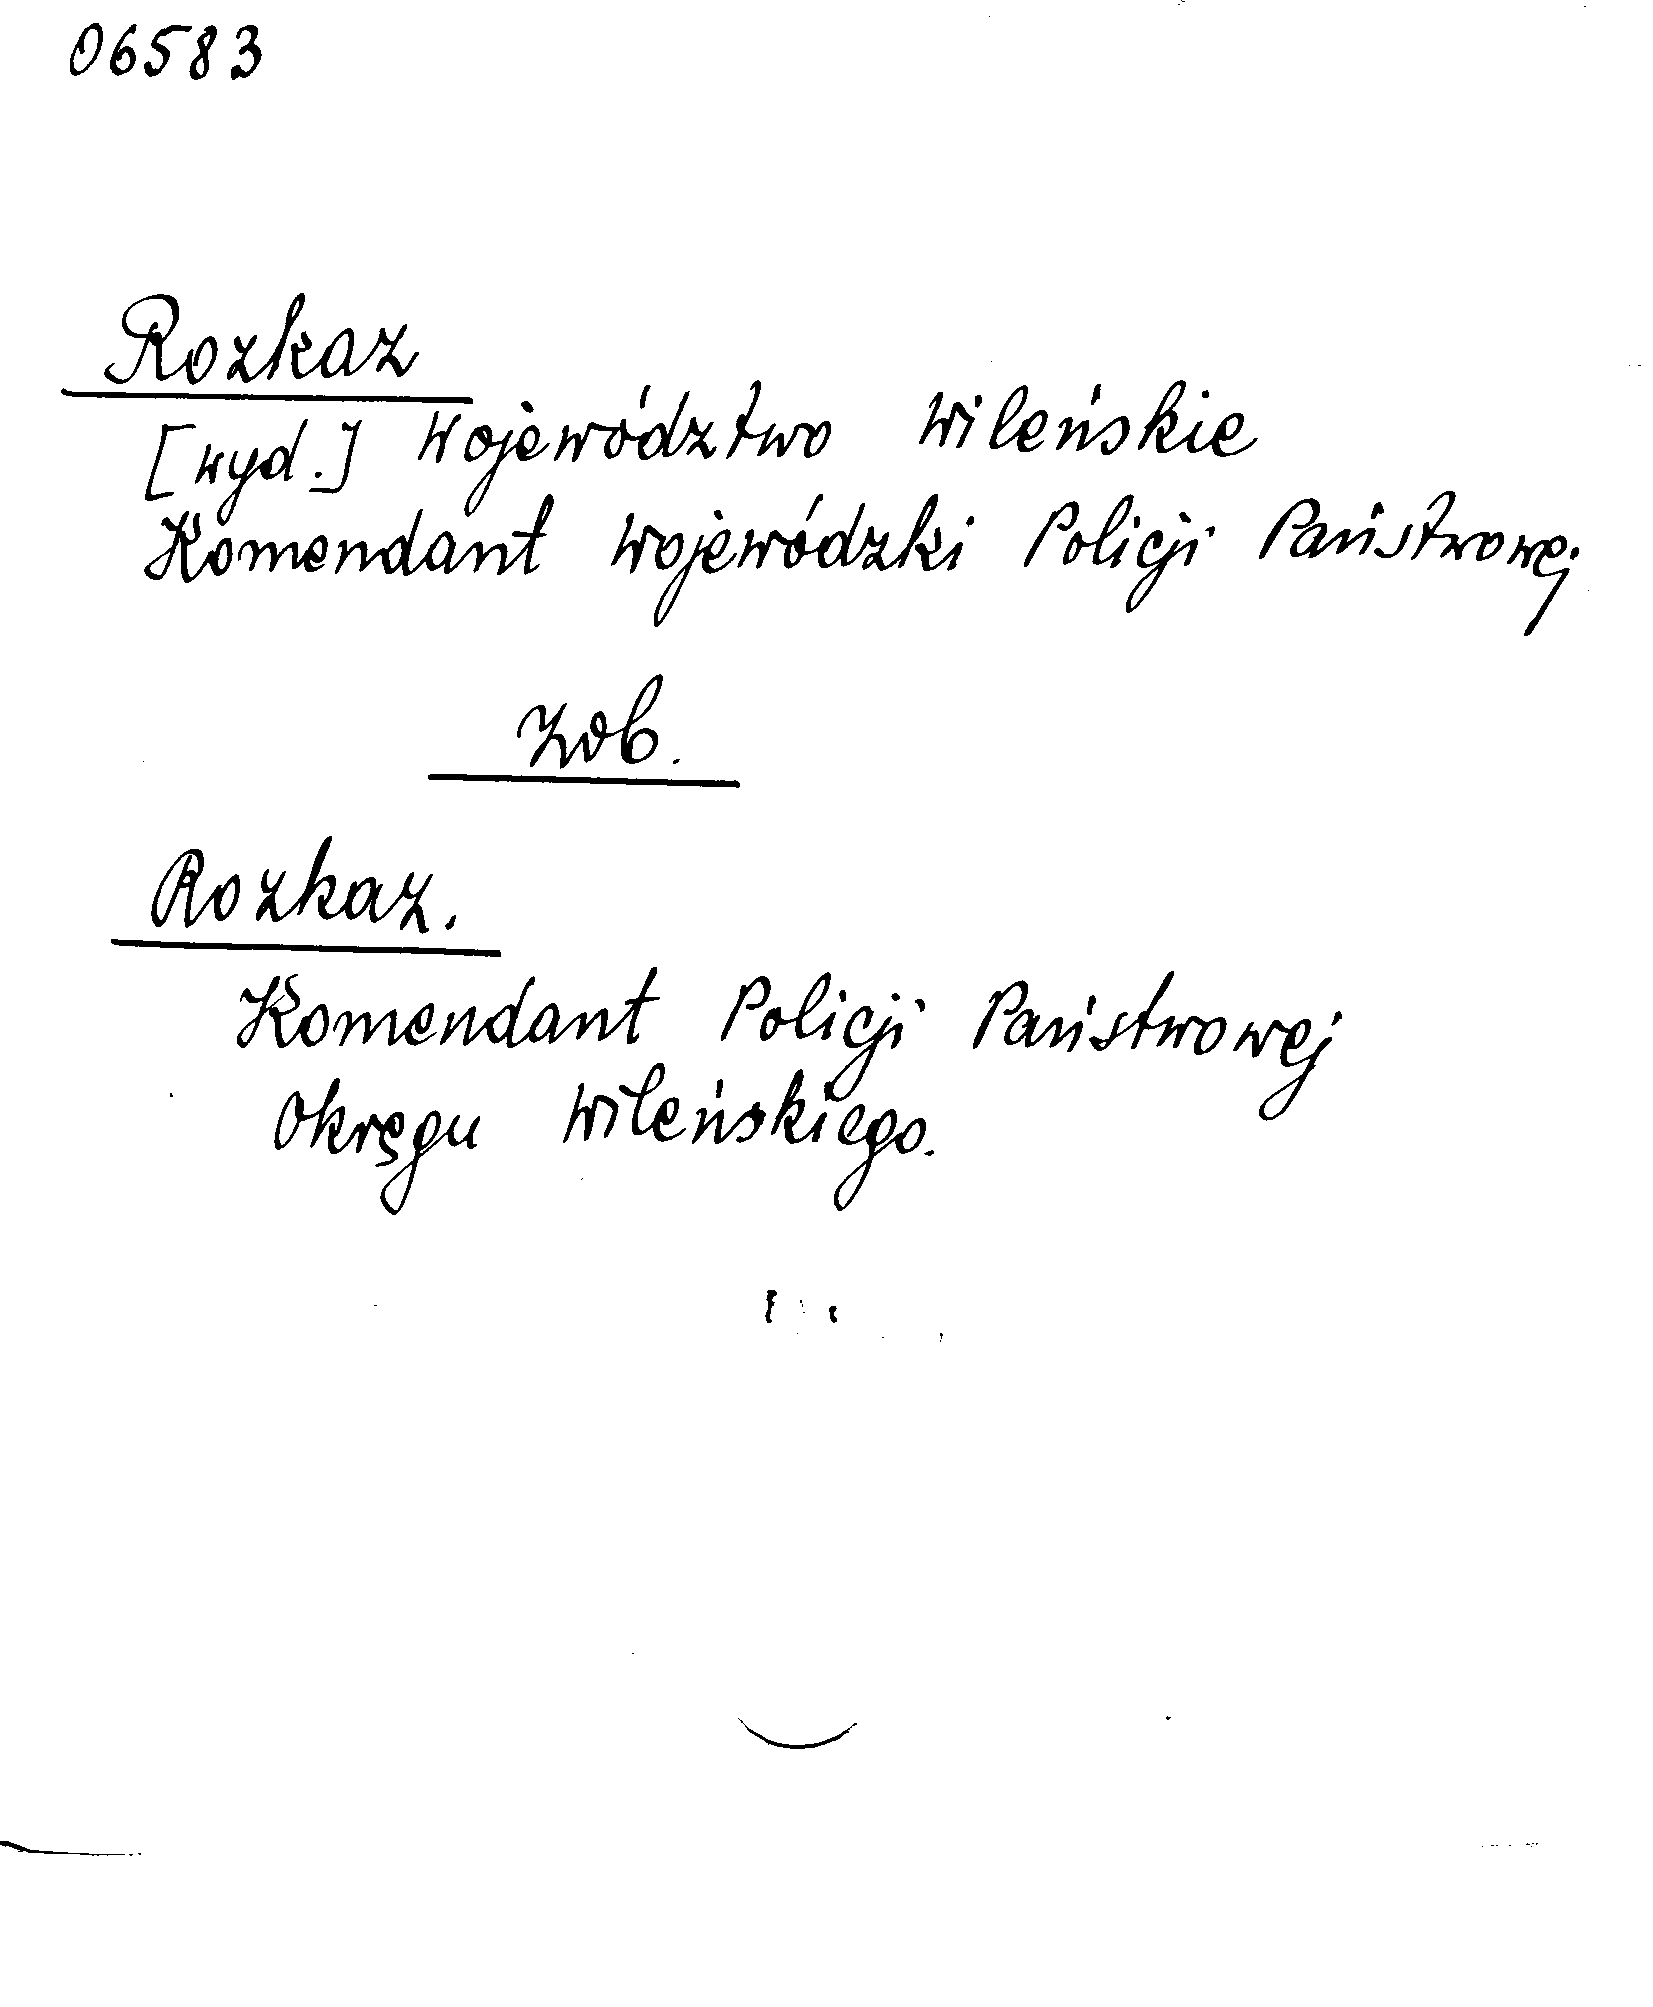 06583
Rozkaz
[wyd.] Województwo Wileńskie
Komendant Wojewódzki Policji Państwowej
Zob.
Rozkaz.
Komendant Policji Państwowej
Okręgu Wileńskiego.